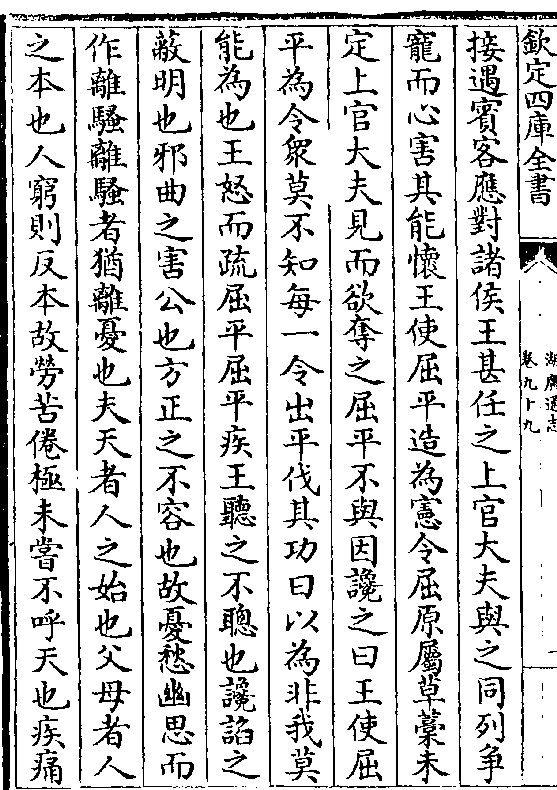 欽定四庫全書
湖廣通志
卷九十九
接遇賓客應對諸侯王甚任之上官大夫與之同列爭
寵而心害其能懷王使屈平造為憲令屈原屬草藁未
定上官大夫見而欲奪之屈平不與因讒之曰王使屈
平為令衆莫不知每一令出平伐其功曰以為非我莫
能為也王怒而疏屈平屈平疾王聽之不聰也讒諂之
蔽明也邪曲之害公也方正之不容也故憂愁幽思而
作離騷離騷者猶離憂也夫天者人之始也父母者人
之本也人窮則反本故勞苦倦極未嘗不呼天也疾痛